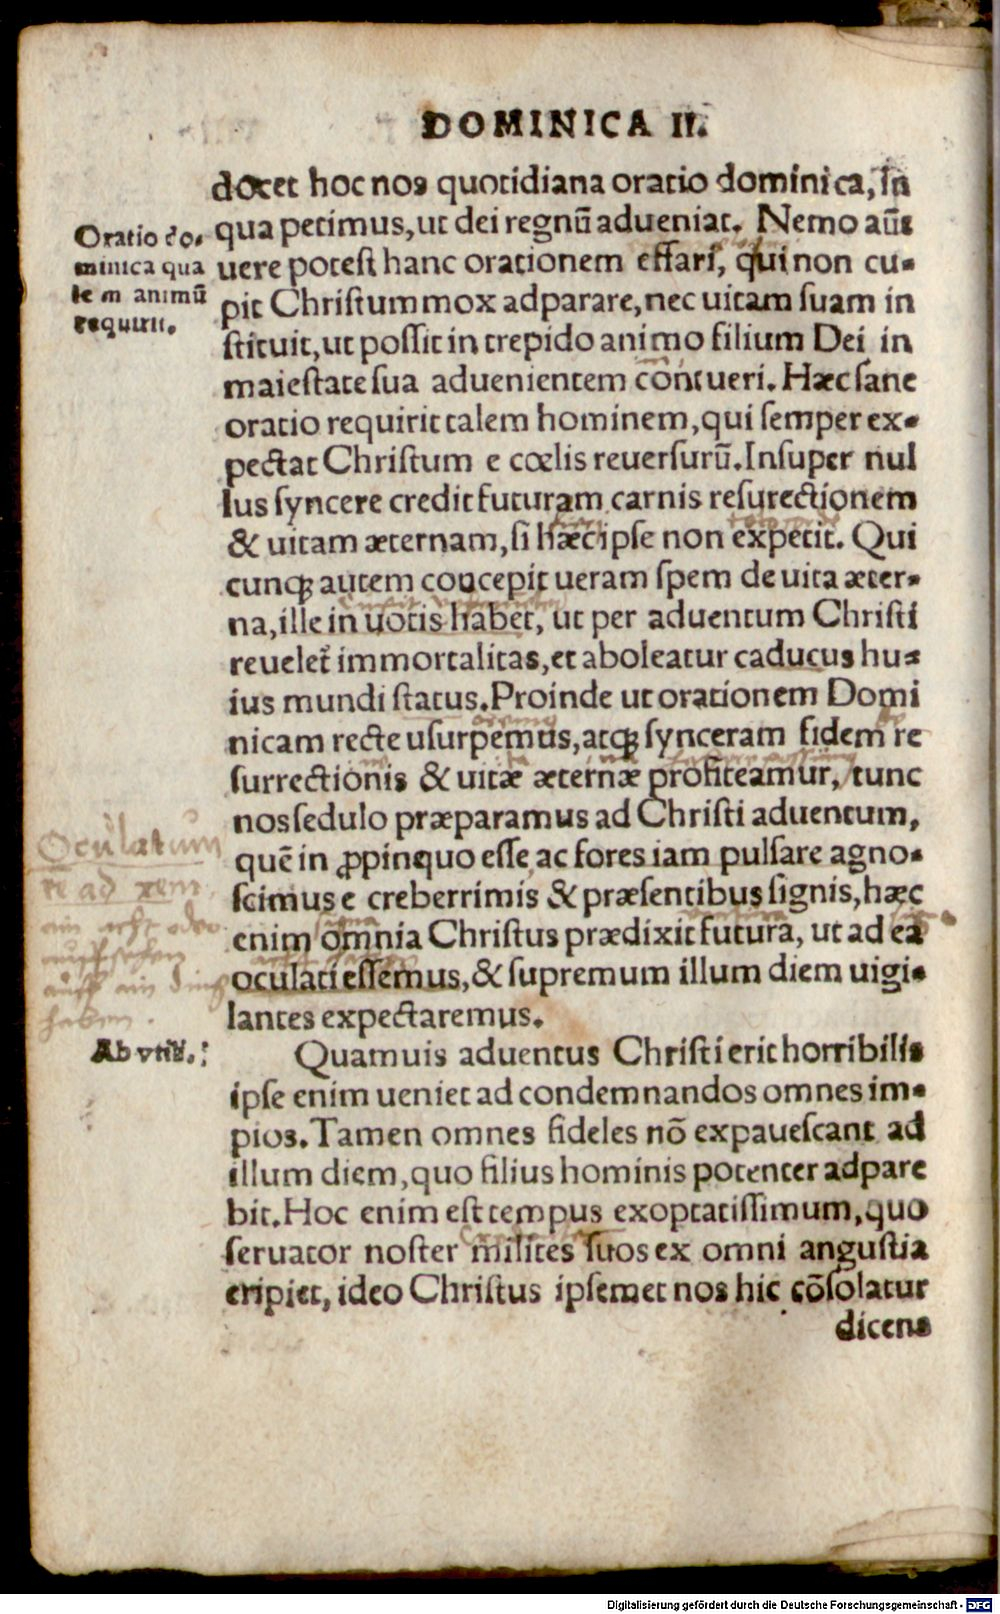 DOMINICA II.
docet hoc nos quotidiana oratio dominica, in
qua petimus, ut dei regnũ adueniat. Nemo aũt
uere potest hanc orationem effari, qui non cu-
pit Christum mox adparare, nec uitam suam in
stituit, ut possit in trepido animo filium Dei in
maiestate sua aduenientem contueri. Hæc sane
oratio requirit talem hominem, qui semper ex-
pectat Christum e cœlis reuersurũ. Insuper nul
lus syncere credit futuram carnis resurectionem
& uitam æternam, si hæc ipse non expetit. Qui
cunqꝫ autem concepit ueram spem de uita æter-
na, ille in uotis habet, ut per aduentum Christi
reuelet̃ immortalitas, et aboleatur caducus hu-
ius mundi status. Proinde ut orationem Domi
nicam recte usurpemus, atqꝫ synceram fidem re
surrectionis & uitæ æternæ profiteamur, tunc
nos sedulo præparamus ad Christi aduentum,
quẽ in ꝓpinquo esse, ac fores iam pulsare agno-
scimus e creberrimis & præsentibus signis, hæc
enim omnia Christus prædixit futura, ut ad ea
oculati essemus, & supremum illum diem uigi-
lantes expectaremus.
Quamuis aduentus Christi erit horribilis
ipse enim ueniet ad condemnandos omnes im-
pios. Tamen omnes fideles nõ expauescant ad
illum diem, quo filius hominis potenter adpare
bit. Hoc enim est tempus exoptatissimum, quo
seruator noster milites suos ex omni angustia
eripiet, ideo Christus ipsemet nos hic cõsolatur
dicens
Oratio do-
minica qua
lem animũ
requirit.
Oculatum
ad rem
auff ain ding
haben.
Ab vtili.
Digitalisierung gefördert durch die Deutsche Forschungsgemeinschaft - DFG